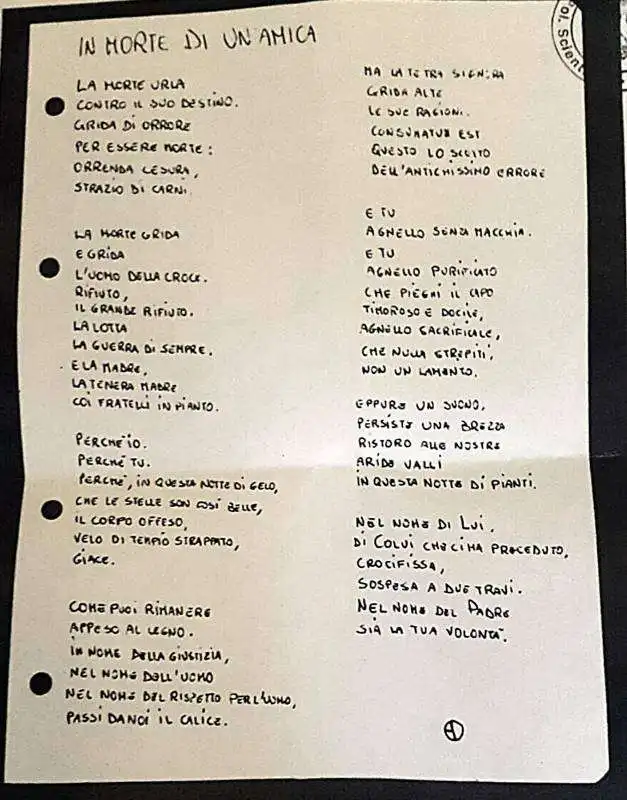 IN MORTE DI UN'AMICA
LA MORTE URLA
CONTRO IL SUO DESTINO.
GRIDA DI ORRORE
PER ESSERE MORTE:
ORRENDA CESURA,
STRAZIO DI CARNI.
LA MORTE GRIDA
E GRIDA
L'UOMO DELLA CROCE.
RIFIUTO,
IL GRANDE RIFIUTO.
LA LOTTA
LA GUERRA DI SEMPRE.
E LA MADRE,
LA TENERA MADRE
COI FRATELLI IN PIANTO.
PERCHÉ IO.
PERCHÉ TU.
PERCHÉ, IN QUESTA NOTTE DI GELO,
CHE LE STELLE SON COSÌ BELLE,
IL CORPO OFFESO,
VELO DI TEMPIO STRAPPATO,
GIACE.
COME PUOI RIMANERE
APPESO AL LEGNO.
IN NOME DELLA GIUSTIZIA,
NEL NOME DELL'UOMO
NEL NOME DEL RISPETTO PER L'UOMO,
PASSI DA NOI IL CALICE.
MA LA TETRA SIGNORA
GRIDA ALTE
LE SUE RAGIONI.
CONSUMATUM EST
QUESTO LO SCOTTO
DELL'ANTICHISSIMO ERRORE
E TU
AGNELLO SENZA MACCHIA.
E TU
AGNELLO PURIFICATO
CHE PIEGHI IL CAPO
TIMOROSO E DOCILE,
AGNELLO SACRIFICALE,
CHE NULLA STREPITI,
NON UN LAMENTO.
EPPURE UN SUONO,
PERSISTE UNA BREZZA
RISTORO ALLE NOSTRE
ARIDE VALLI
IN QUESTA NOTTE DI PIANTI.
NEL NOME DI LUI,
DI COLUI CHE CI HA PRECEDUTO,
CROCIFISSA,
SOSPESA A DUE TRAVI.
NEL NOME DEL PADRE
SIA LA TUA VOLONTÀ.